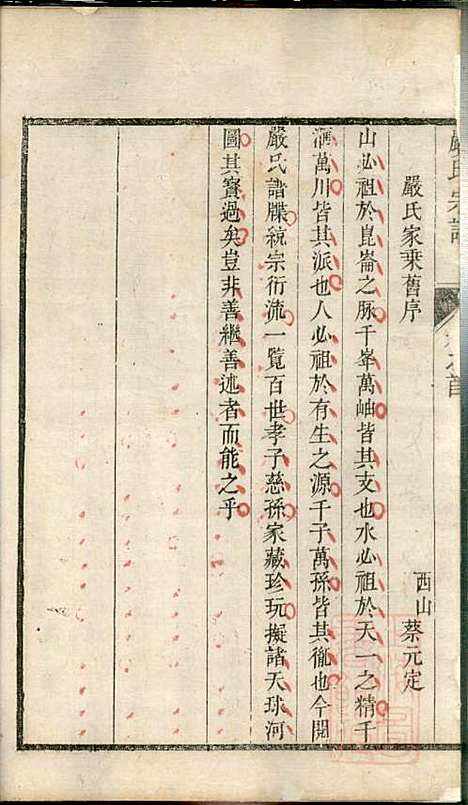 嚴氏宗譜
卷之首
嚴氏家乘舊序
西山 蔡元定
山必祖於崑崙之脉千峯萬岫皆其支也水必祖於天一之精千
滙萬川皆其派也人必祖於有生之源千子萬孫皆其衡也今閱
嚴氏譜牒統宗衍流一覽百世孝子慈孫家藏珍玩擬諸天球河
圖其寶過矣豈非善繼善述者而能之乎